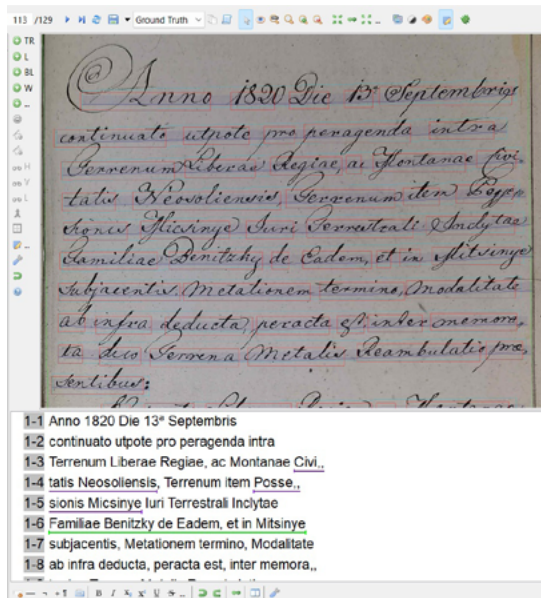 113 /129 Ground Truth
TR
L
BL
W
H
V
L
Anno 1820 Die 13ª Septembris
continuato utpote pro peragenda intra
Terrenum Liberae Regiae, ac Montanae Civi„
tatis Neosoliensis, Terrenum item Posse„
sionis Micsinye Iuri Terrestrali Inclytae
Familiae Benitzky de Eadem, et in Mitsinye
subjacentis, Metationem termino, Modalitate
ab infra deducta, peracta est, inter memora„
ta dico Terrena Metalis Reambulatio præ„
sentibus:
1-1 Anno 1820 Die 13ª Septembris
1-2 continuato utpote pro peragenda intra
1-3 Terrenum Liberae Regiae, ac Montanae Civi,,
1-4 tatis Neosoliensis, Terrenum item Posse,,
1-5 sionis Micsinye Iuri Terrestrali Inclytae
1-6 Familiae Benitzky de Eadem, et in Mitsinye
1-7 subjacentis, Metationem termino, Modalitate
1-8 ab infra deducta, peracta est, inter memora,,